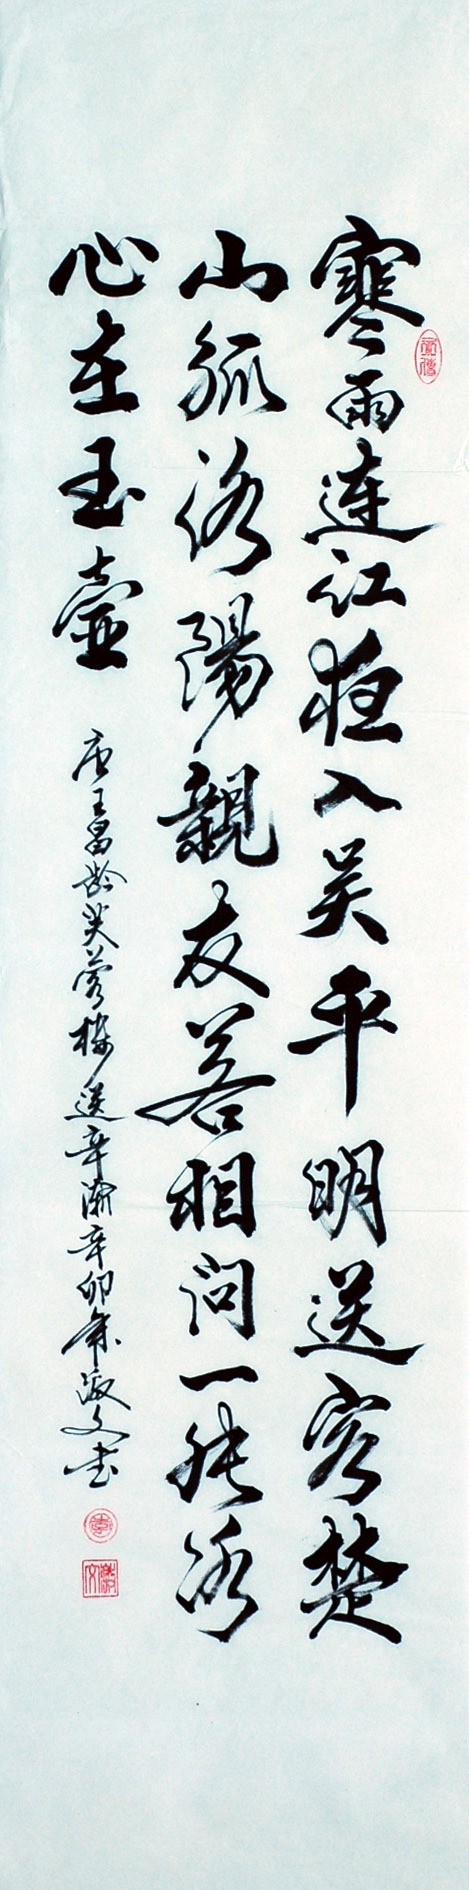 寒雨连江夜入吴平明送客楚
山孤洛陽親友若相问一片冰
心在玉壺
唐王昌龄芙蓉楼送辛漸辛卯年文书